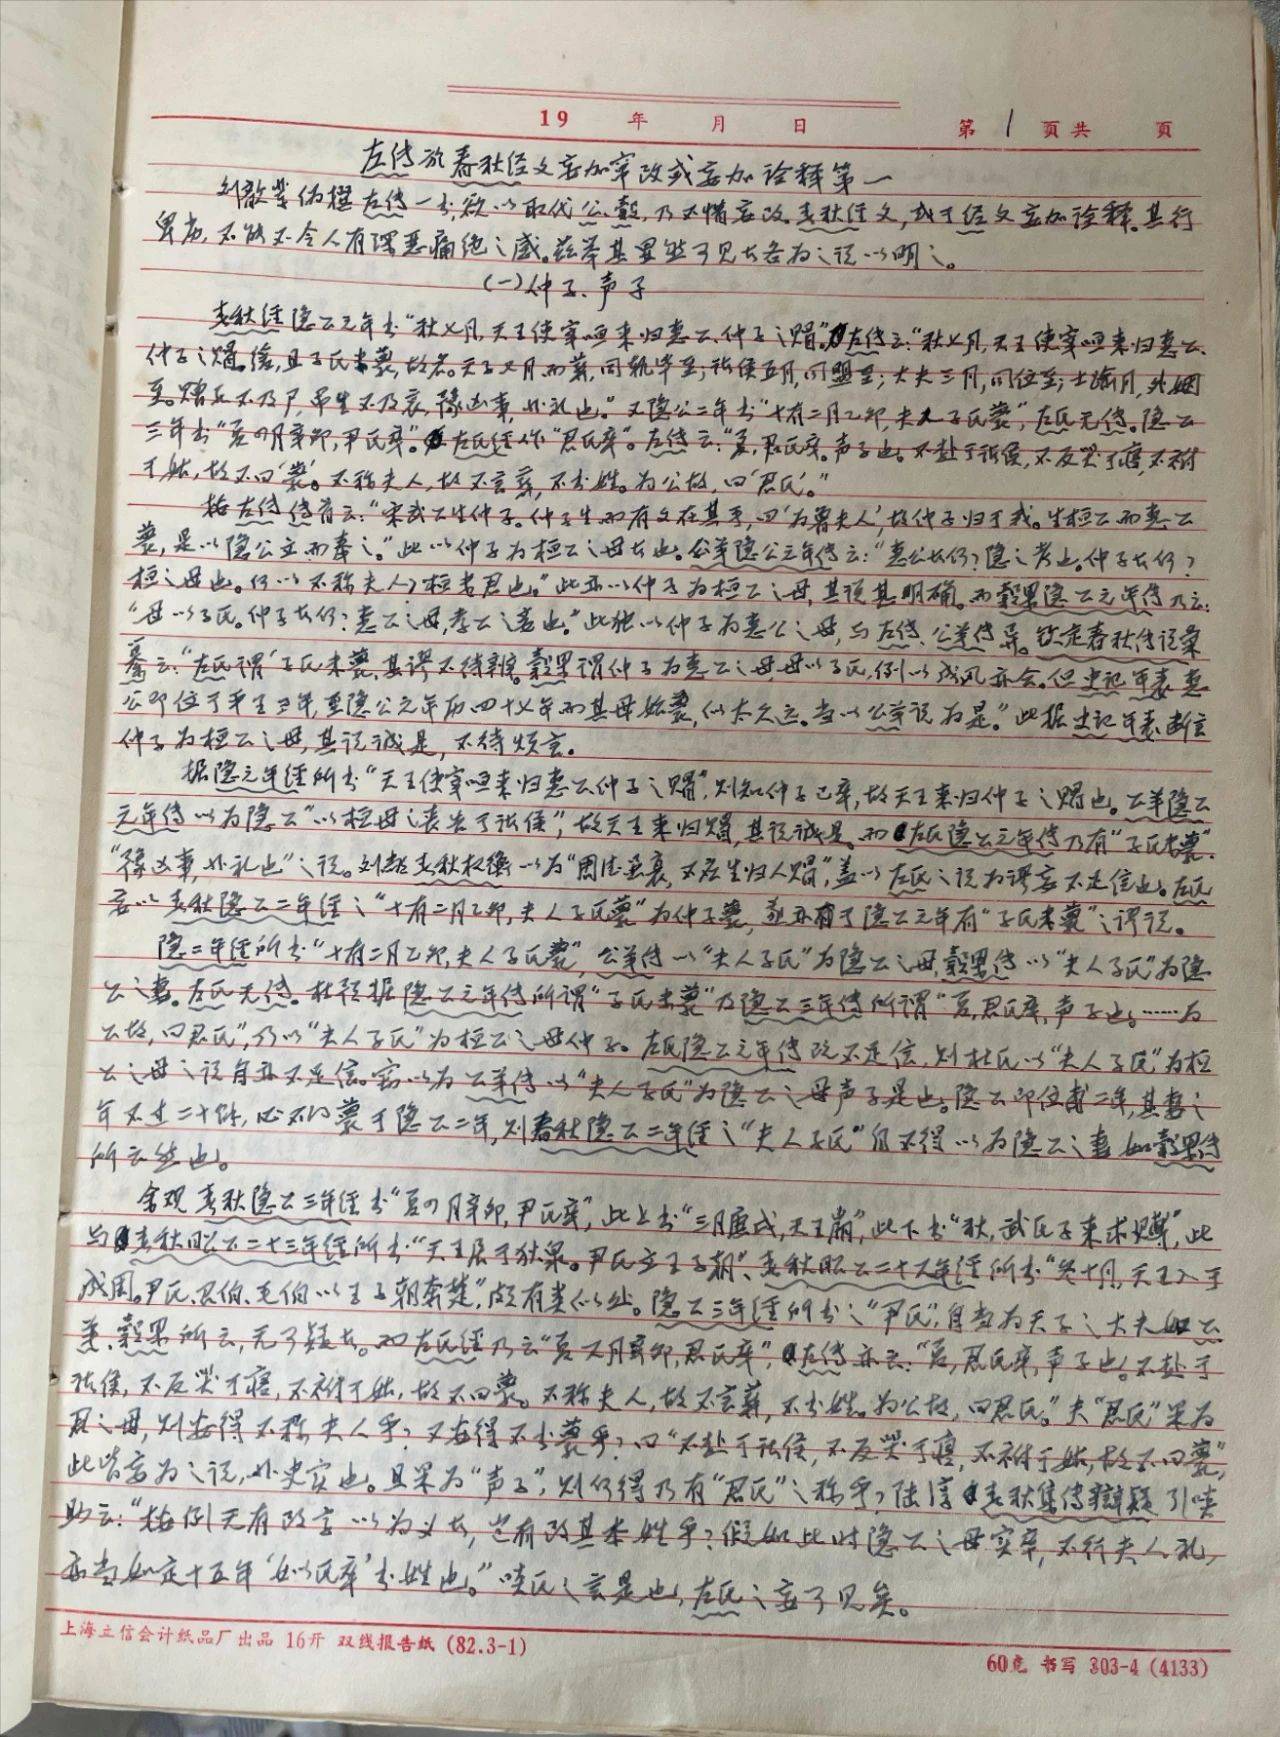 19 年 月 日 第 1 页共 页
左传於春秋经文妄加窜改或妄加诠释第一
刘歆辈伪撰左传一书,欲以取代公、榖,乃不惜妄改春秋经文,或于经文妄加诠释。其行
卑劣,不能不令人有深恶痛绝之感。兹举其显然可见者各为之说以明之。
(一)仲子、声子
春秋经隐公元年书“秋七月,天王使宰咺来归惠公、仲子之賵。”左传云:“秋七月,天王使宰咺来归惠公、
仲子之賵。缓,且子氏未薨,故名。天子七月而葬,同轨毕至;诸侯五月,同盟至;大夫三月,同位至;士踰月,外姻
至。赠死不及尸,吊生不及哀,豫凶事,非礼也。”又隐公二年书“十有二月乙卯,夫人子氏薨”,左氏无传。隐公
三年书“夏四月辛卯,尹氏卒”。左氏经作“君氏卒”。左传云:“夏,君氏卒。声子也。不赴于诸侯,不反哭于寝,不祔
于姑,故不曰‘薨’。不称夫人,故不言葬,不书姓。为公故,曰‘君氏’。”
按左传传首云:“宋武公生仲子。仲子生而有文在其手,曰‘为鲁夫人’,故仲子归于我。生桓公而惠公
薨,是以隐公立而奉之。”此以仲子为桓公之母者也。公羊隐公元年传云:“惠公者何?隐之考也。仲子者何?
桓之母也。何以不称夫人?桓未君也。”此亦以仲子为桓公之母,其说甚明确。而榖梁隐公元年传乃云:
“母以子氏。仲子者何?惠公之母,孝公之妾也。”此独以仲子为惠公之母,与左传、公羊传异。钦定春秋传说彙
纂云:“左氏谓‘子氏未薨’,其谬不待辨。榖梁谓仲子为惠公之母,母以子氏,例以成风亦合。但史记年表惠
公即位于平王三年,至隐公元年历四十七年而其母始薨,似太久远。当以公羊说为是。”此据史记年表断言
仲子为桓公之母,其说诚是,不待烦言。
据隐元年经所书“天王使宰咺来归惠公仲子之賵”,则知仲子已卒,故天王来归仲子之賵也。公羊隐公
元年传以为隐公“以桓母之丧告于诸侯”,故天王来归賵,其说诚是。而左氏隐公元年传乃有“子氏未薨”
“豫凶事,非礼也”之说。刘敞春秋权衡以为“周德虽衰,不应生归人賵”,盖以左氏之说为谬妄不足信也。左氏
妄以春秋隐公二年经之“十有二月乙卯,夫人子氏薨”为仲子薨,遂亦有于隐公元年有“子氏未薨”之谬说。
隐二年经所书“十有二月乙卯,夫人子氏薨”,公羊传以“夫人子氏”为隐公之母,榖梁传以“夫人子氏”为隐
公之妻。左氏无传。杜预据隐公元年传所谓“子氏未薨”及隐公三年传所谓“夏,君氏卒,声子也。……为
公故,曰君氏”,乃以“夫人子氏”为桓公之母仲子。左氏隐公元年传既不足信,则杜氏以“夫人子氏”为桓
公之母之说自亦不足信。窃以为公羊传以“夫人子氏”为隐公之母声子是也。隐公即位甫二年,其妻之
年不过二十余,必不以薨于隐公二年,则春秋隐公二年经之“夫人子氏”自不得以为隐公之妻如榖梁传
所云然也。
含观春秋隐公三年经书“夏四月辛卯,尹氏卒”,此上书“三月庚戌,天王崩”,此下书“秋,武氏子来求赙”,此
与春秋昭公二十三年经所书“天王居于狄泉。尹氏立王子朝”、春秋昭公二十六年经所书“冬十月,天王入于
成周。尹氏、召伯、毛伯以王子朝奔楚”,颇有类似处。隐公三年经所书之“尹氏”,自当为天子之大夫如公
羊、榖梁所云,无可疑者。而左氏经乃云“夏四月辛卯,君氏卒”,左传亦云:“夏,君氏卒,声子也。不赴于
诸侯,不反哭于寝,不祔于姑,故不曰薨。不称夫人,故不言葬,不书姓。为公故,曰君氏。”夫“君氏”果为
君之母,则安得不称夫人乎?又安得不书薨乎?曰“不赴于诸侯,不反哭于寝,不祔于姑,故不曰薨”,
此皆妄为之说,非史实也。且果为“声子”,则何得乃有“君氏”之称乎?陆淳春秋集传辩疑引啖
助云:“按例无有改字以为义者,岂有改其本姓乎?假如此时隐公之母实卒,不行夫人礼,
亦当如定十五年‘姒氏卒’书姓也。”啖氏之言是也,左氏之妄可见矣。
上海立信会计纸品厂出品 16开 双线报告纸 (82.3-1)
60克 书写 303-4 (4133)